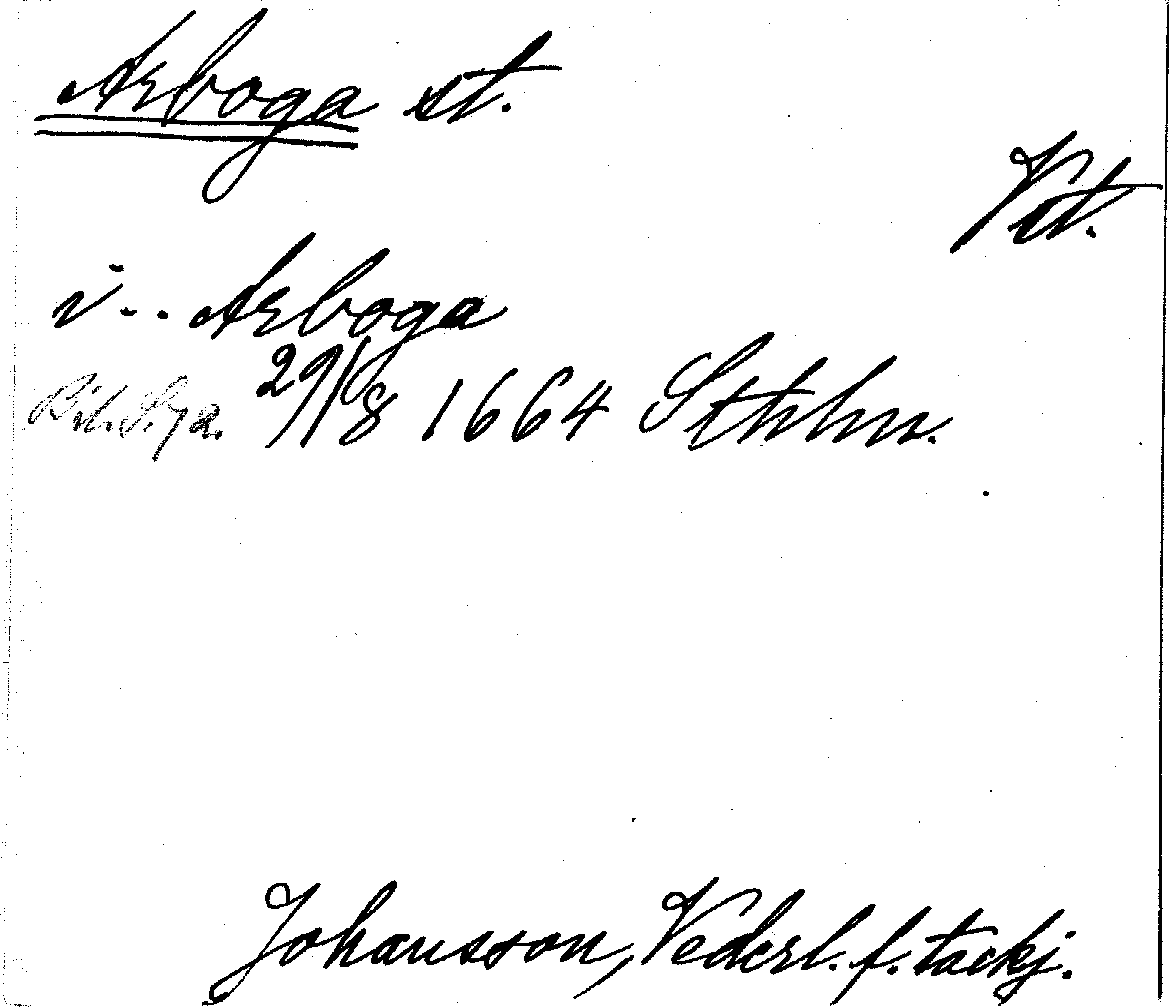 Arboga st.
Vst.
i .. Arboga
29/8 1664 Sthlm.
Johansson, Vederl. f. tackj.